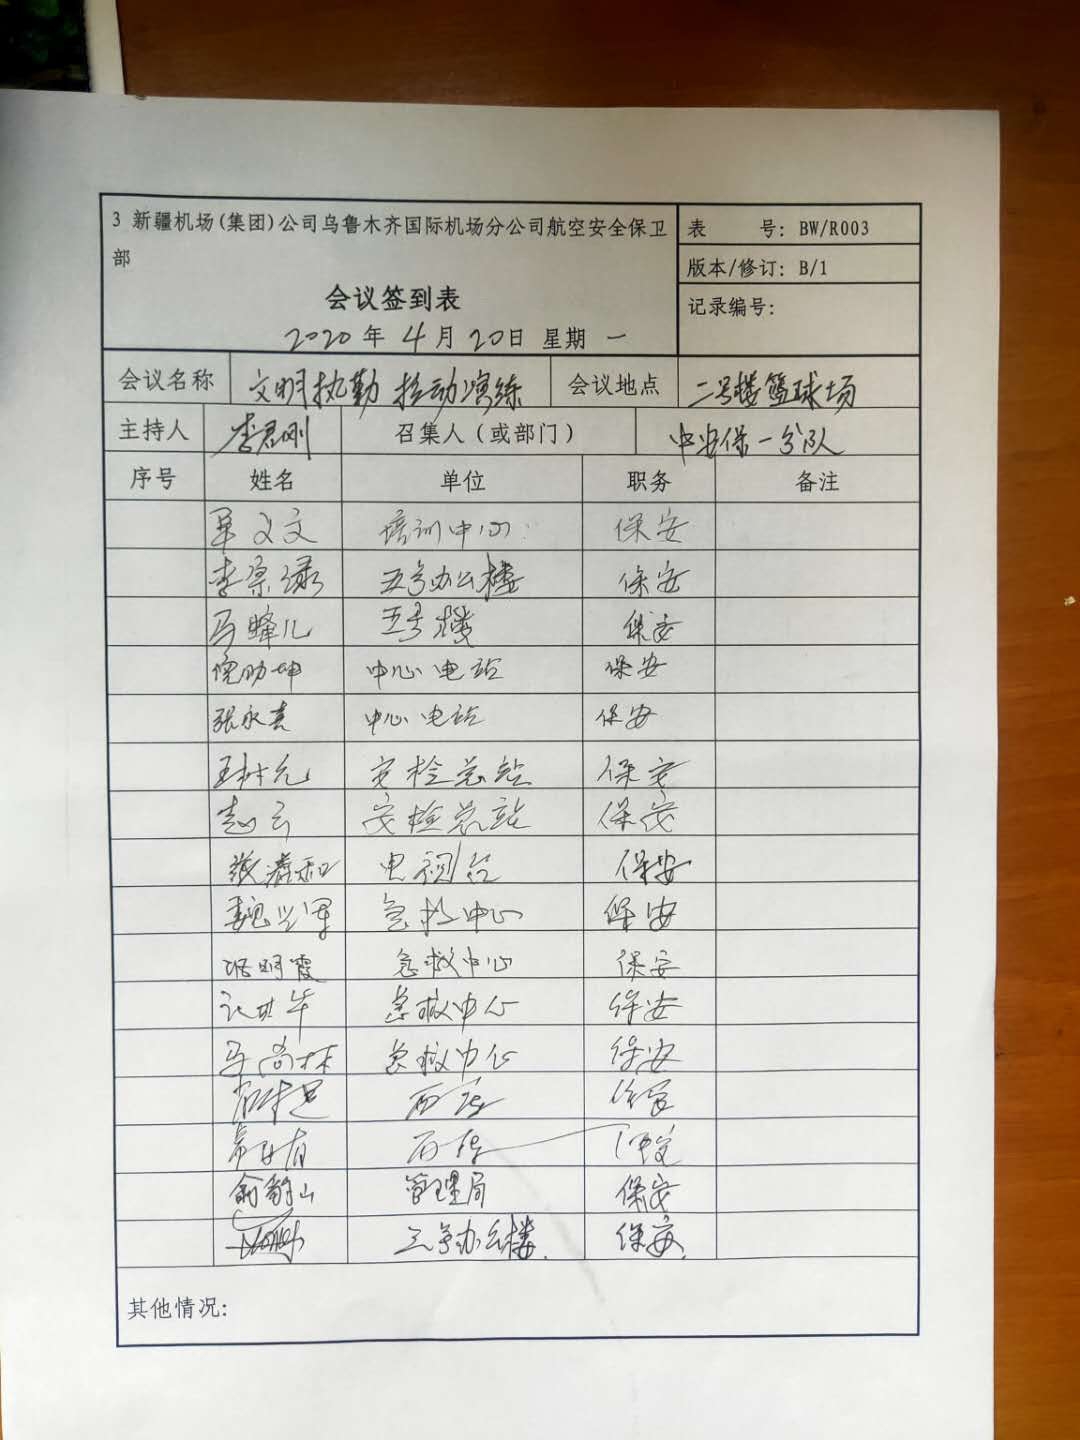 3 新疆机场(集团)公司乌鲁木齐国际机场分公司航空安全保卫
部
会议签到表
2020年 4月 20日 星期 一
表 号: BW/R003
版本/修订: B/1
记录编号:
会议名称 文明执勤 拉动演练 会议地点 二号楼篮球场
主持人 李君刚 召集人(或部门) 中安保一分队
序号 姓名 单位 职务 备注
培训中心 保安
五号办公楼 保安
马蜂儿 五号楼 保安
中心电站 保安
张永喜 中心电站 保安
安检总站 保安
赵云 安检总站 保安
电视台 保安
魏兴军 急救中心 保安
明霞 急救中心 保安
急救中心 保安
马尚林 急救中心 保安
保安
保安
俞豹山 管理局 保安
三号办公楼. 保安.
其他情况: